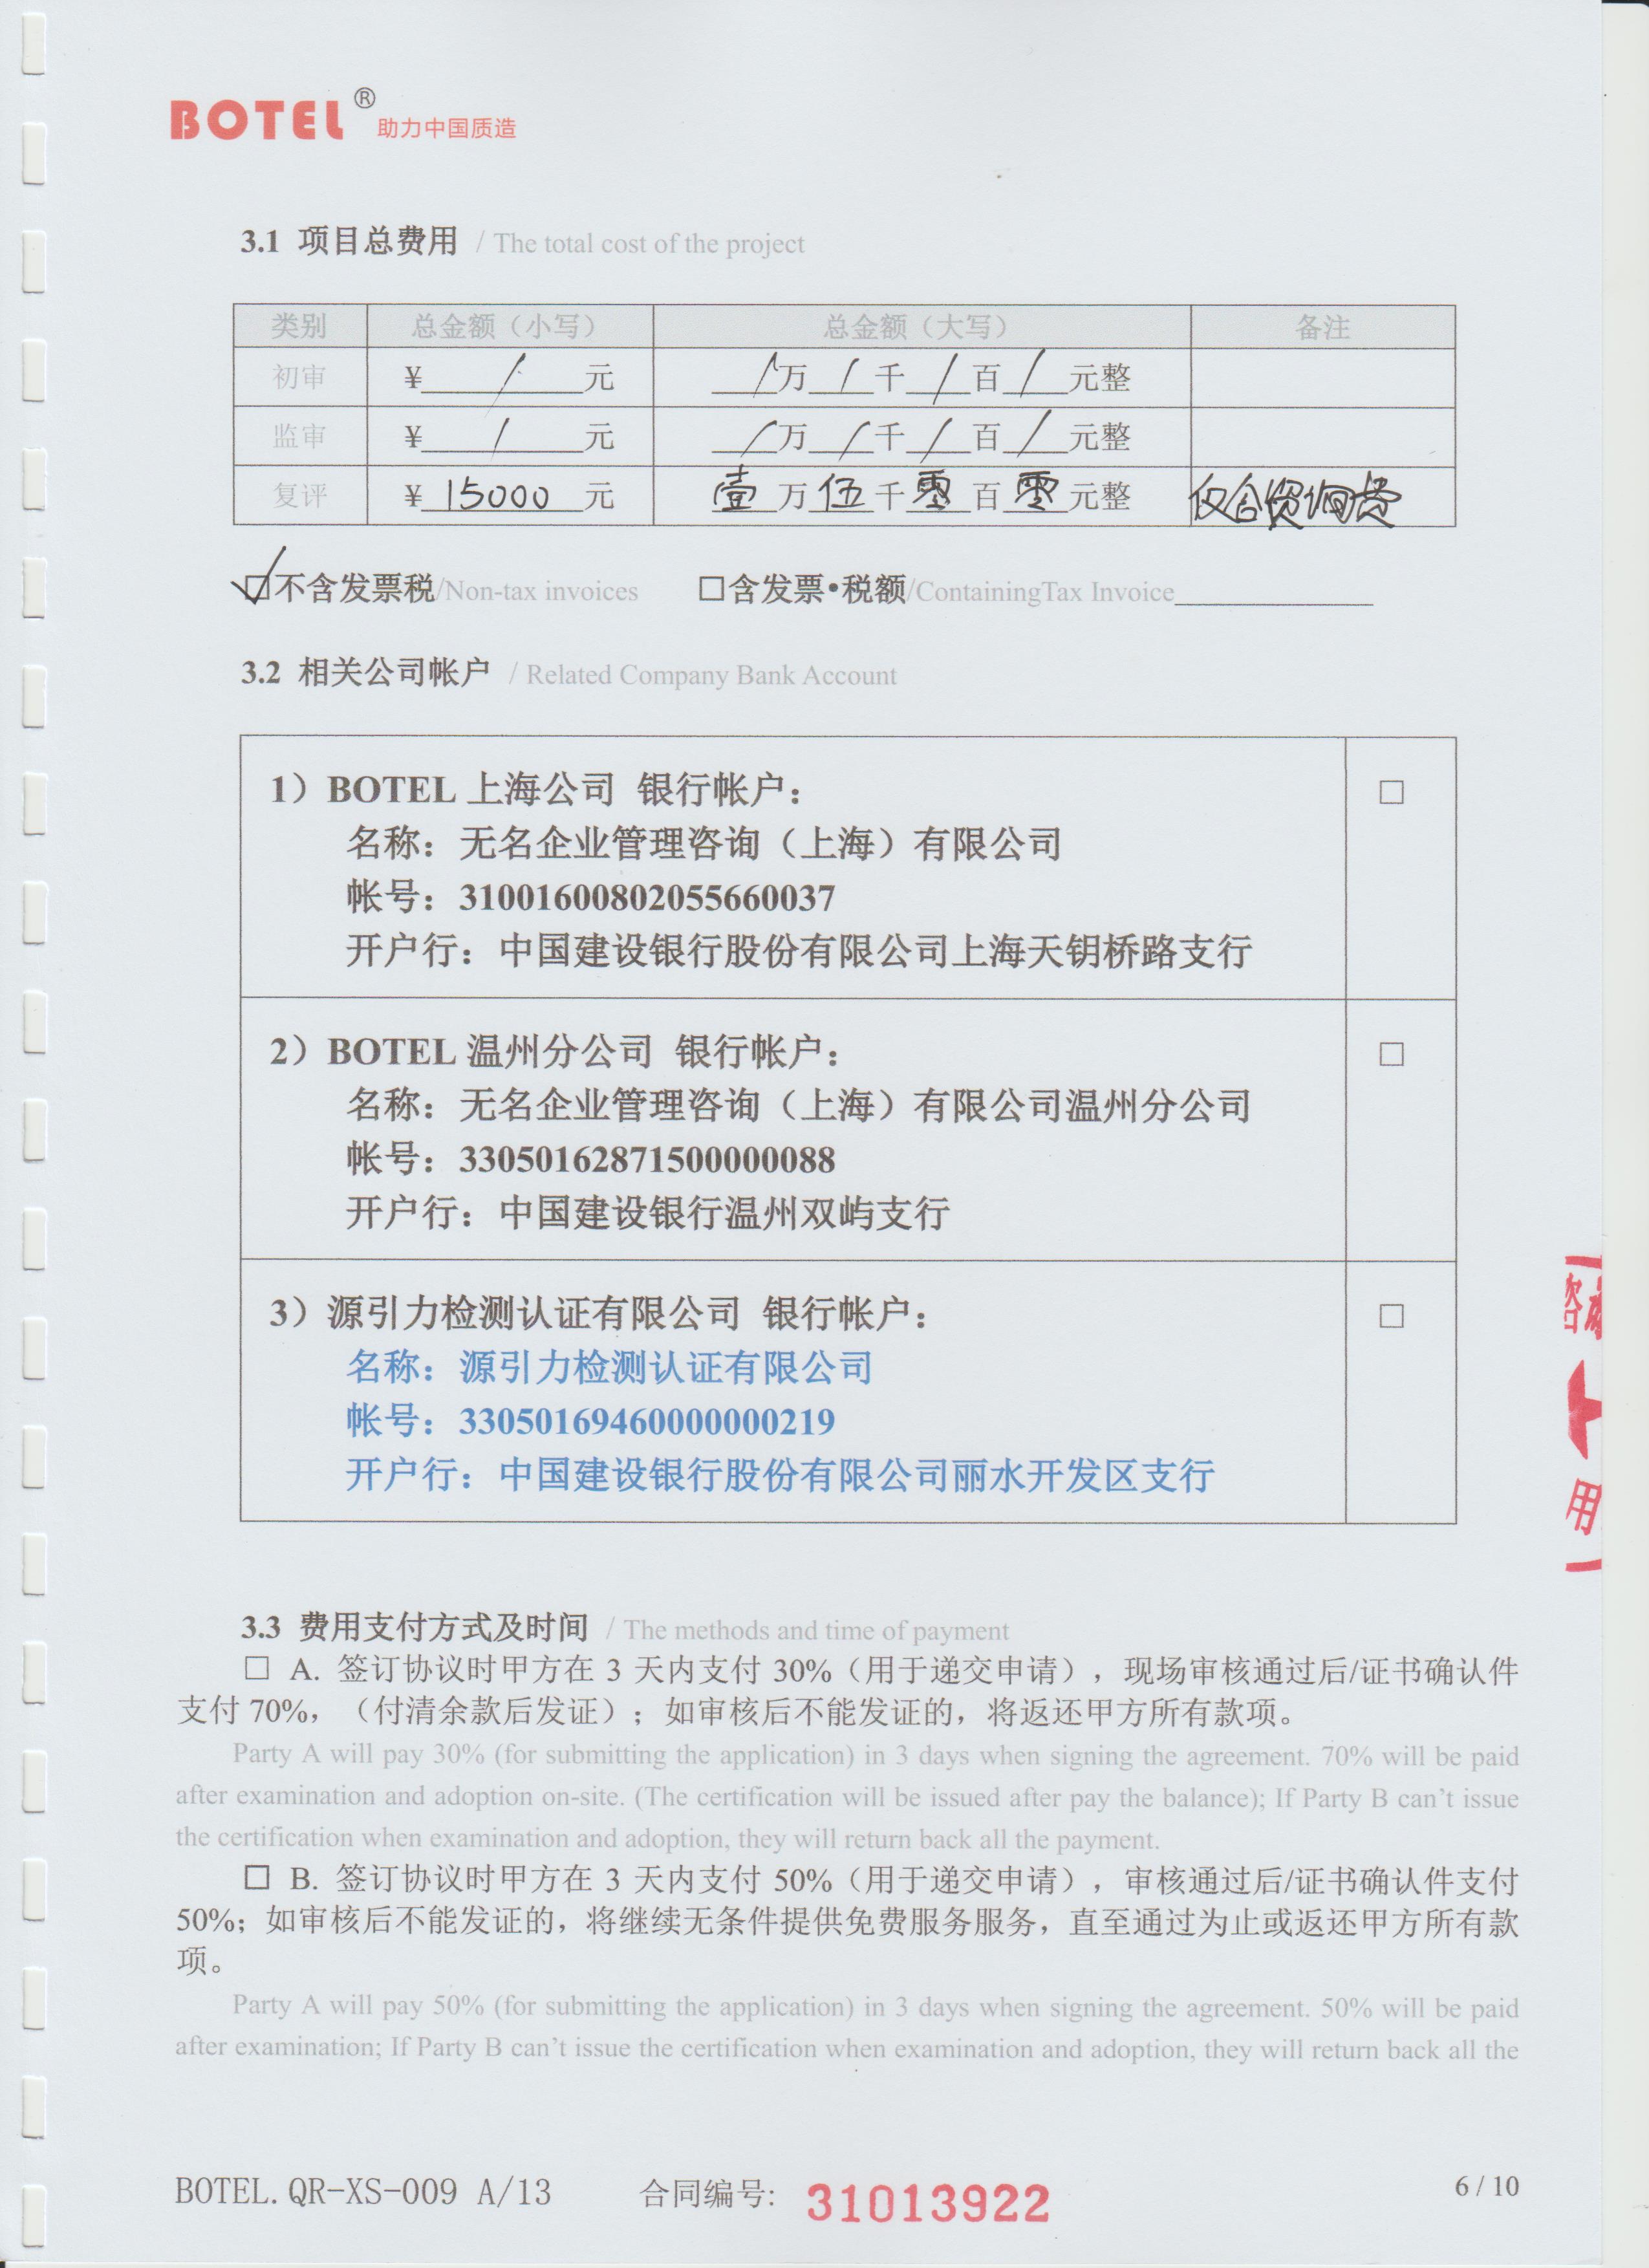 BOTEL® 助力中国质造
3.1 项目总费用 / The total cost of the project
类别 总金额（小写） 总金额（大写） 备注
初审 ¥ / 元 / 万 / 千 / 百 / 元整
监审 ¥ / 元 / 万 / 千 / 百 / 元整
复评 ¥ 15000 元 壹 万 伍 千 零 百 零 元整 仅含 费
☑不含发票税/Non-tax invoices □含发票•税额/ContainingTax Invoice
3.2 相关公司帐户 / Related Company Bank Account
1）BOTEL 上海公司 银行帐户： □
名称：无名企业管理咨询（上海）有限公司
帐号：31001600802055660037
开户行：中国建设银行股份有限公司上海天钥桥路支行
2）BOTEL 温州分公司 银行帐户： □
名称：无名企业管理咨询（上海）有限公司温州分公司
帐号：33050162871500000088
开户行：中国建设银行温州双屿支行
3）源引力检测认证有限公司 银行帐户： □
名称：源引力检测认证有限公司
帐号：33050169460000000219
开户行：中国建设银行股份有限公司丽水开发区支行
用
3.3 费用支付方式及时间 / The methods and time of payment
□ A. 签订协议时甲方在 3 天内支付 30%（用于递交申请），现场审核通过后/证书确认件
支付 70%，（付清余款后发证）；如审核后不能发证的，将返还甲方所有款项。
Party A will pay 30% (for submitting the application) in 3 days when signing the agreement. 70% will be paid
after examination and adoption on-site. (The certification will be issued after pay the balance); If Party B can't issue
the certification when examination and adoption, they will return back all the payment.
□ B. 签订协议时甲方在 3 天内支付 50%（用于递交申请），审核通过后/证书确认件支付
50%；如审核后不能发证的，将继续无条件提供免费服务服务，直至通过为止或返还甲方所有款
项。
Party A will pay 50% (for submitting the application) in 3 days when signing the agreement. 50% will be paid
after examination; If Party B can't issue the certification when examination and adoption, they will return back all the
BOTEL.QR-XS-009 A/13 合同编号: 31013922 6 / 10